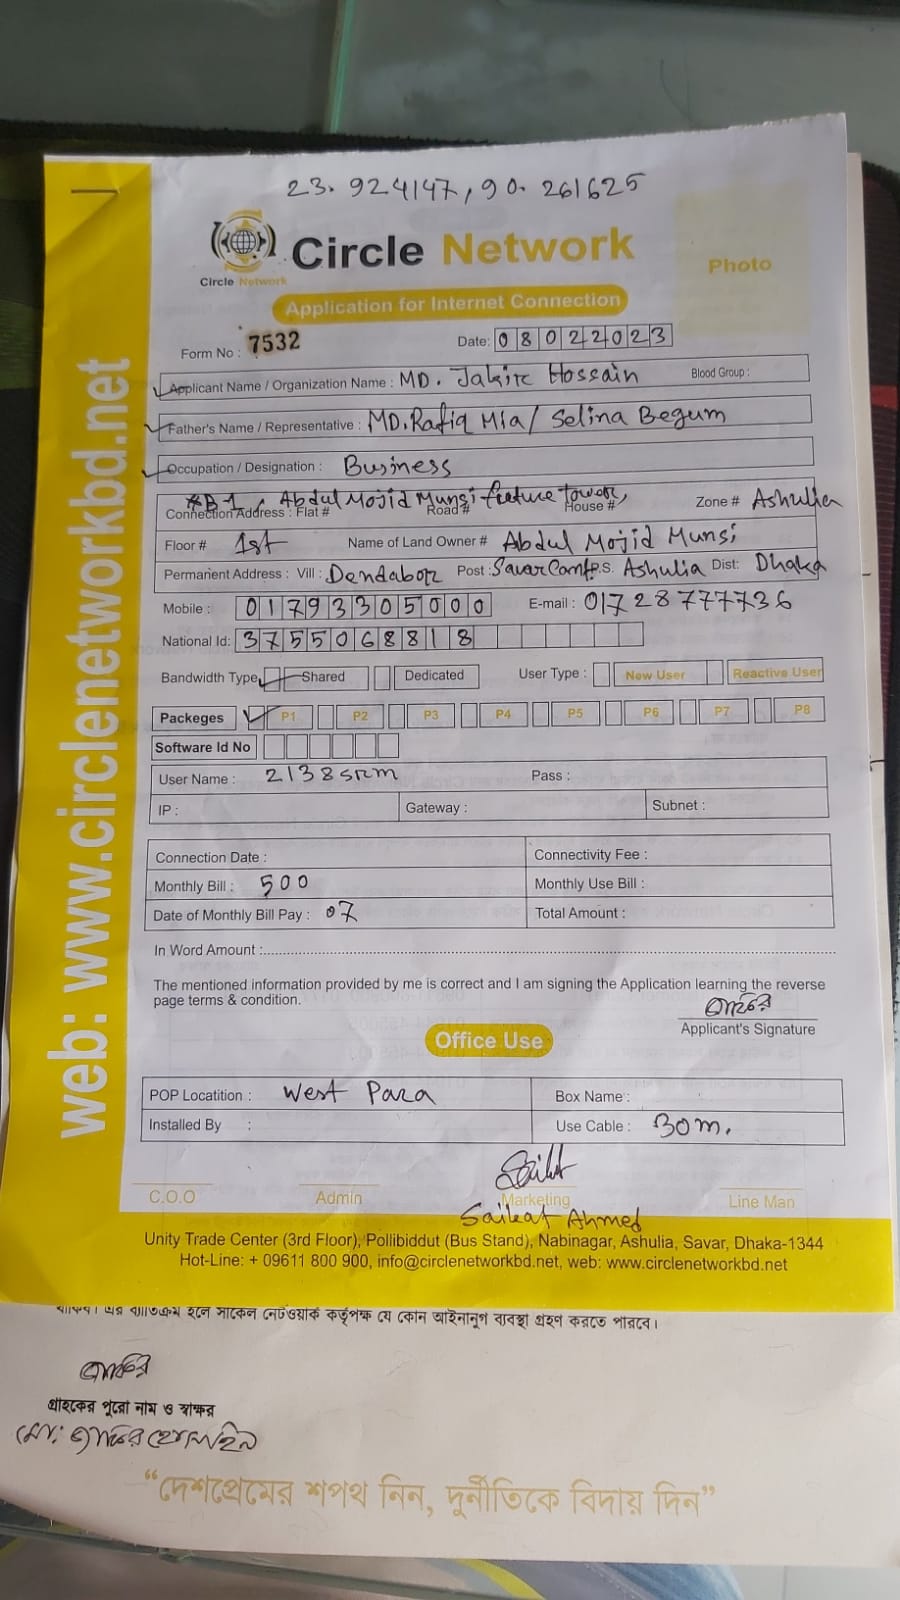 23.924147, 90.261625
Circle Network
Circle Network
Photo
Application for Internet Connection
Form No : 7532 Date: 08022023
Applicant Name / Organization Name : MD. Jakir Hossain Blood Group :
Father's Name / Representative : MD. Rafiq Mia / Selina Begum
Occupation / Designation : Business
B-1, Abdul Mojid Munsi future tower,
Connection Address : Flat # Road # House # Zone # Ashulia
Floor # 1st Name of Land Owner # Abdul Mojid Munsi
Permanent Address : Vill : Dendabor Post : Savar Cant P.S. Ashulia Dist: Dhaka
Mobile : 01793305000 E-mail : 01728777736
National Id: 3755068818
Bandwidth Type Shared Dedicated User Type : New User Reactive User
Packeges P1 P2 P3 P4 P5 P6 P7 P8
Software Id No
User Name : 2138srm Pass :
IP : Gateway : Subnet :
Connection Date : Connectivity Fee :
Monthly Bill : 500 Monthly Use Bill :
Date of Monthly Bill Pay : 07 Total Amount :
In Word Amount :
The mentioned information provided by me is correct and I am signing the Application learning the reverse
page terms & condition.
জাকির
Applicant's Signature
Office Use
POP Locatition : West Para Box Name :
Installed By : Use Cable : 30m.
C.O.O Admin Marketing Line Man
Saikat Ahmed
Unity Trade Center (3rd Floor), Pollibiddut (Bus Stand), Nabinagar, Ashulia, Savar, Dhaka-1344
Hot-Line: + 09611 800 900, info@circlenetworkbd.net, web: www.circlenetworkbd.net
web: www.circlenetworkbd.net
থাকিব। এর ব্যতিক্রম হলে সার্কেল নেটওয়ার্ক কর্তৃপক্ষ যে কোন আইনানুগ ব্যবস্থা গ্রহণ করতে পারবে।
জাকির
গ্রাহকের পুরো নাম ও স্বাক্ষর
মো: জাকির হোসাইন
“দেশপ্রেমের শপথ নিন, দুর্নীতিকে বিদায় দিন”